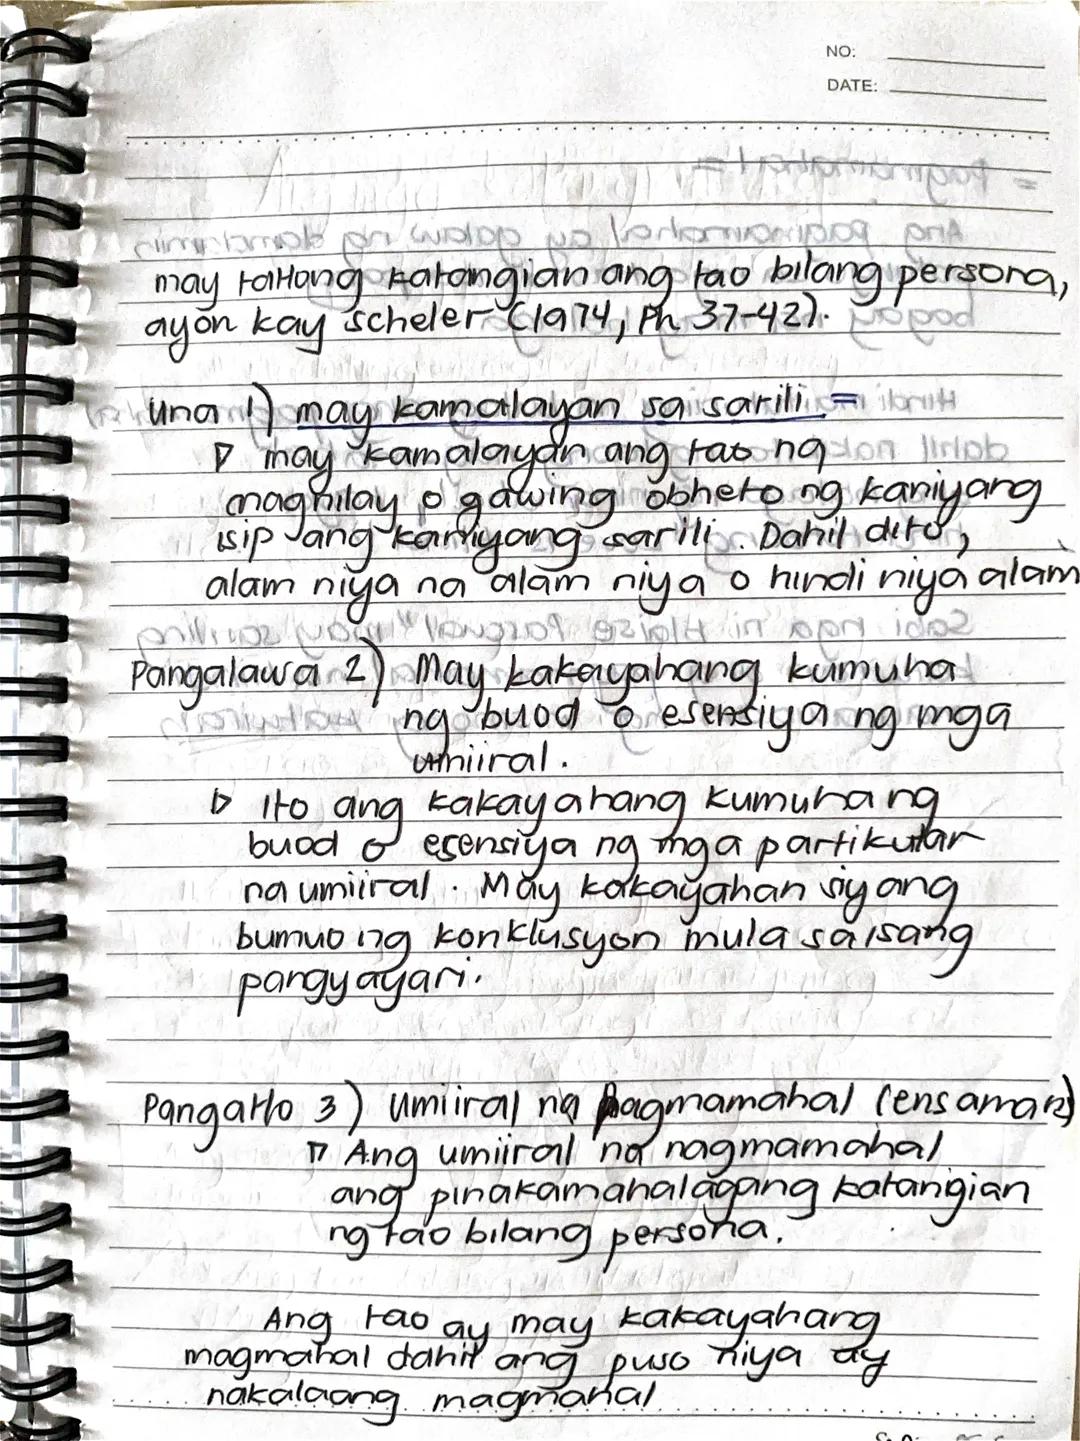 NO:
DATE:
may tatlong katangian ang tao bilang persona,
ayon kay Scheler (1974, Ph 37-42).
Una 1) may kamalayan sa sarili =
may kamalayan ang tao na
magnilay o gawing obheto ng kaniyang
isip ang kaniyang sarili. Dahil dito,
alam niya na alam niya o hindi niya alam
Pangalawa 2) May kakayahang kumuha
ng buod o esensiya ng mga
umiiral.
Ito ang kakayahang kumuha ng
buod o esensiya ng mga partikular
na umiiral. May kakayahan siyang
bumuo ng konklusyon mula sa isang
pangyayari.
Pangatlo 3) umiiral na nagmamahal (ens amans)
Ang umiiral na nagmamahal
ang pinakamahalagang katangian
ng tao bilang persona.
Ang tao ay may kakayahang
magmahal dahil ang puso niya ay
nakalaang magmahal